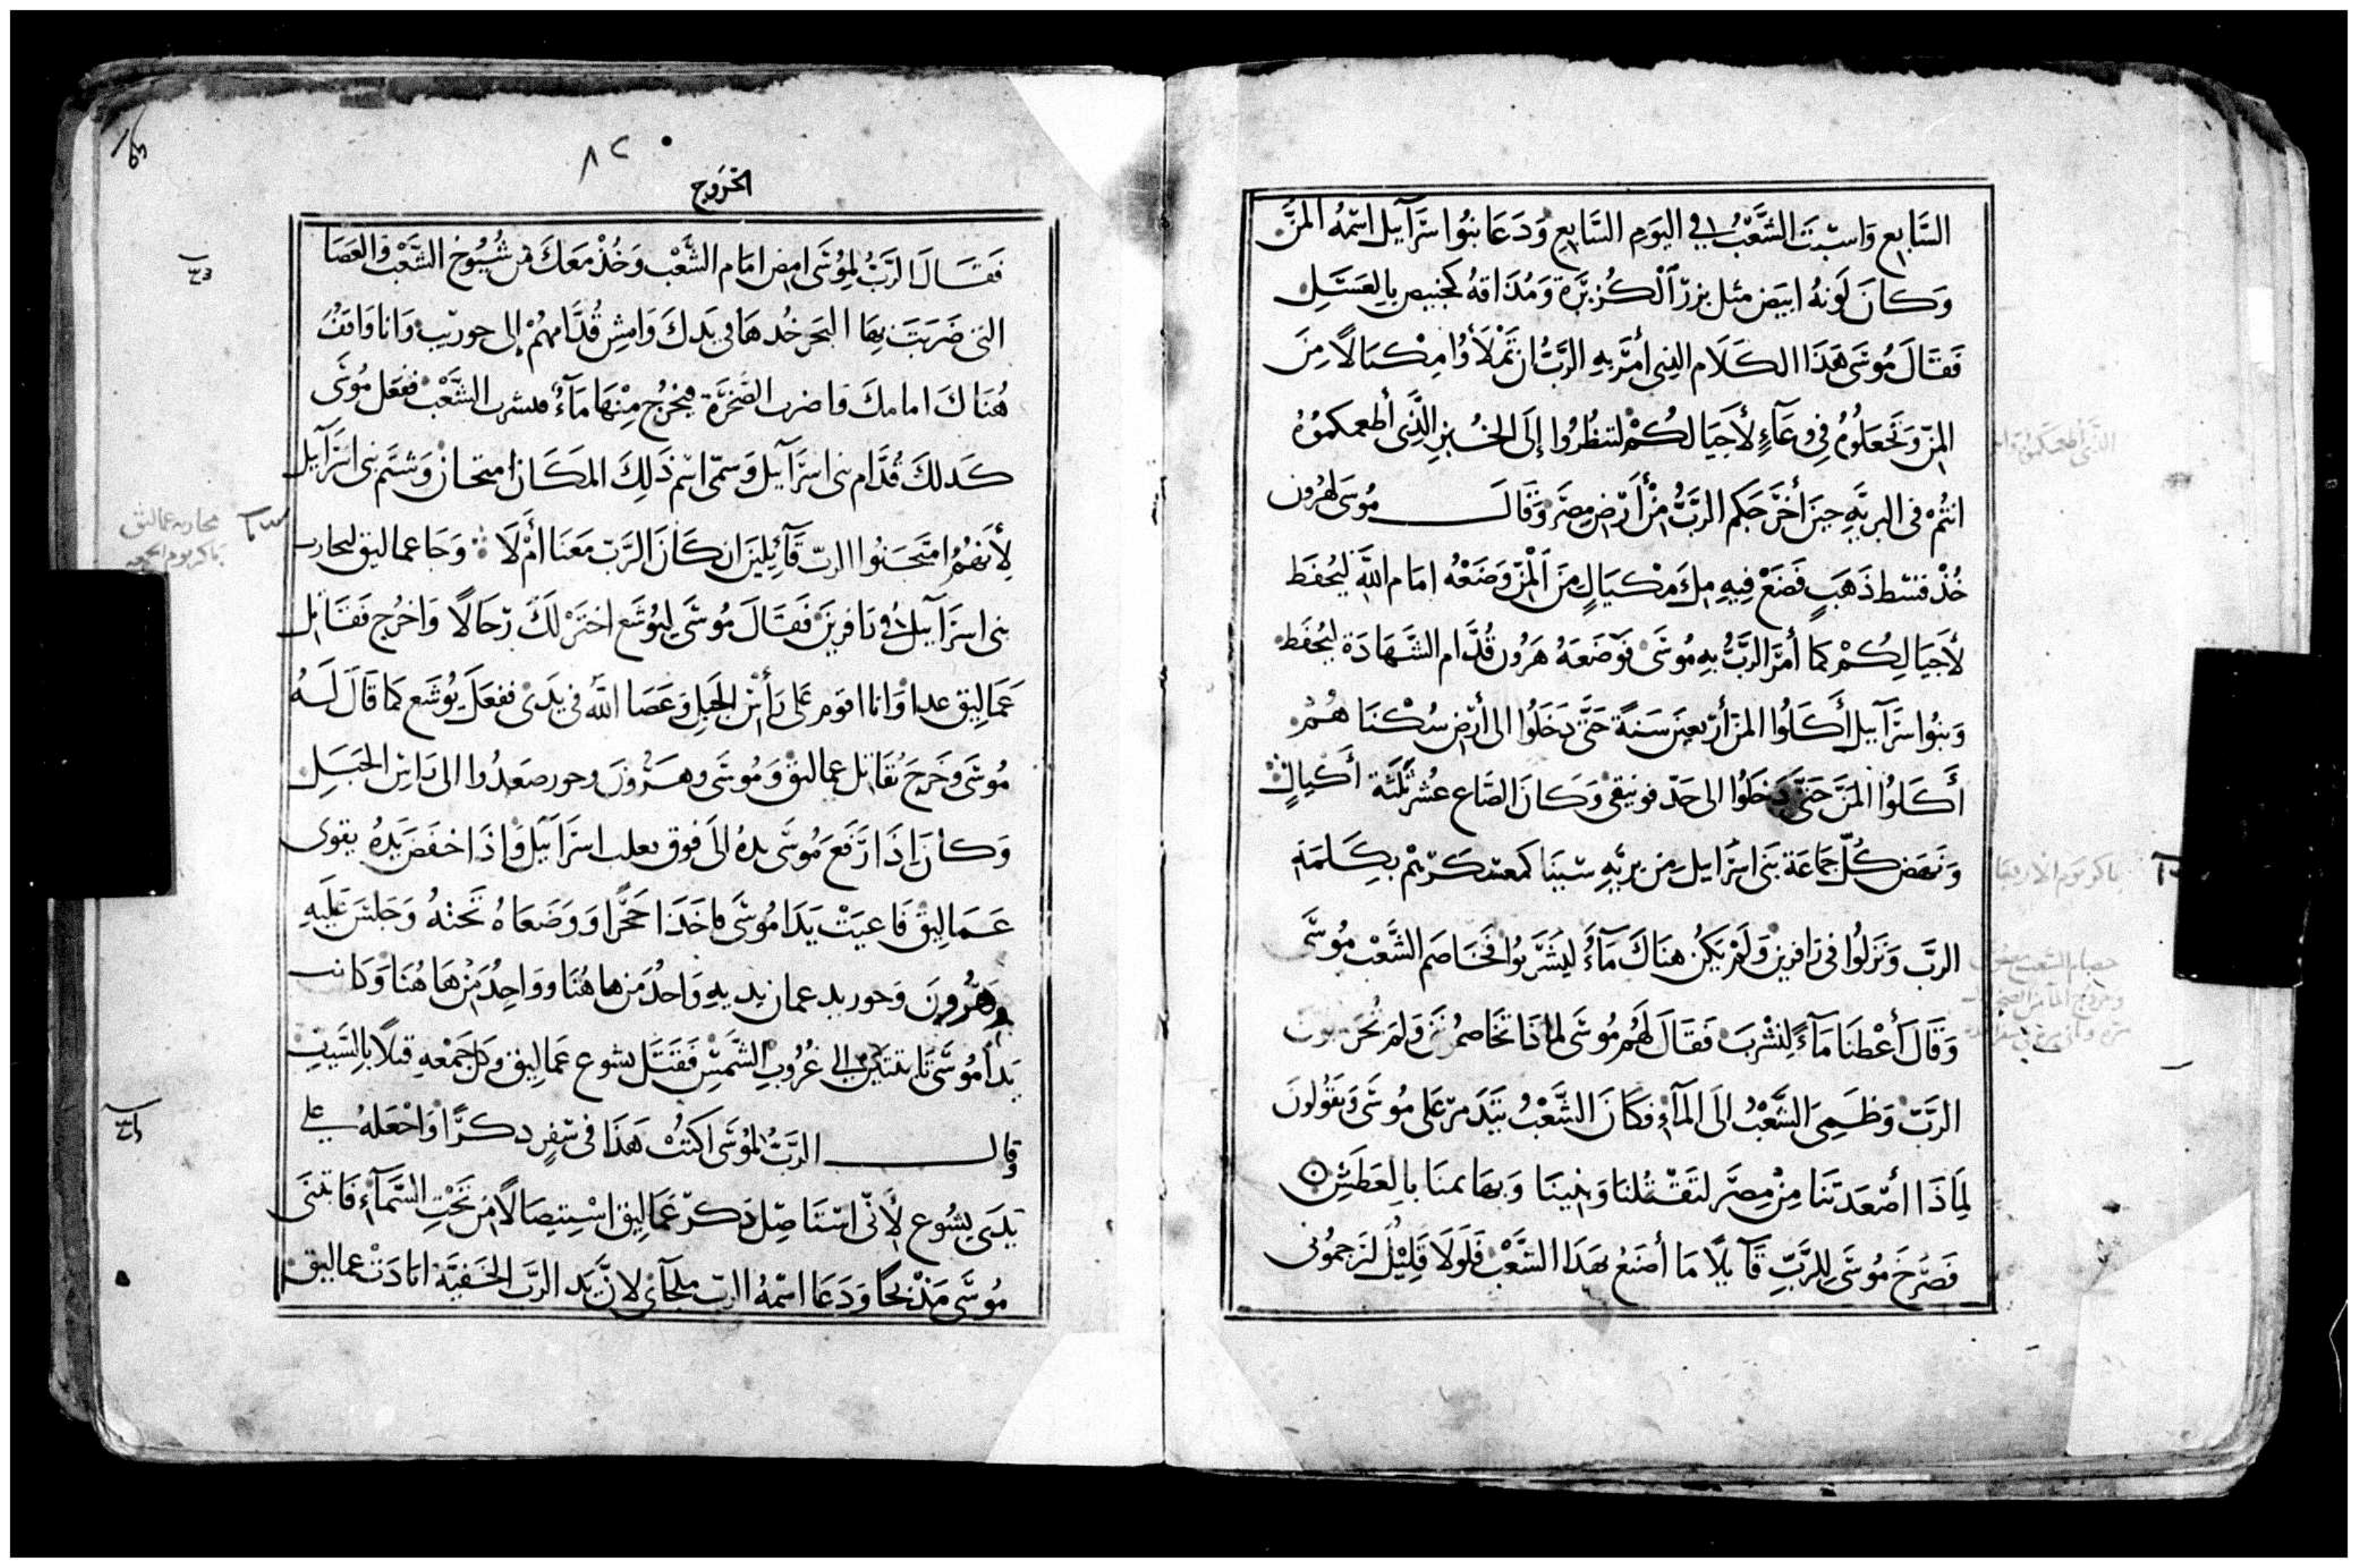 السَّابع وَاسبَتَ الشَّعْبُ في اليَومِ السَّابع وَدَعَا بنُوا سرَآييل اسمُهُ المَنَّ
وَكانَ لَونهُ ابيَض مثل بزرّ الكُزبرَة وَمُذَاقهُ كخبيص بالعَسَلِ
فَقَالَ مُوسَى هَذَا الكَلَام الذِي أمَرَ بهِ الرَّبُّ ان تَمْلَأوُا مِكيَالاً مِنَ
المنّ وَتجعَلوُهُ فِي وعَآءٍ لأجيَالكُمْ لتنظُرُوا إلَى الخُبزِ الَّذِى أطعمكمُوُهُ
انتُمْ فى البريَّهِ حينَ أخرَجَكم الرَّبُّ مِنْ أَرْضِ مصرَ وَقَالَ مُوسَى لهرُون
خُذْ قسْط ذَهَبٍ فَضَعْ فِيهِ ملَ مكيَالٍ مِنَ المَنّ وَضَعْهُ امَام اللهِ ليُحفَظ
لأجيَالِكُمْ كما أمَرَ الرَّبُّ بهِ مُوسَى فوَضَعَهُ هَرُون قُدَّام الشَّهَادَة ليُحفَظ
وَبنُوا سرَآييل أكَلوُا المَنّ أربَعِينَ سَنةً حَتَّى دَخَلوُا الى أرْضِ سُكنَاهُمْ
أكَلوُا المَنَّ حَتَّى دَخَلوُا الى حَدّ فونيقى وَكَانَ الصَّاع عُشر ثَلَثَة أكيَالٍ
وَنَهَض كُلّ جَمَاعَة بَنى اسرَايل مِن بريَّهِ سينَا كمعسكرَيهم بكِلمَة
الربّ وَنَزلوُا فى رَافِدين وَلَمْ يَكُن هنَاكَ مَآءٌ ليَشرَبوُا فخَاصَم الشَّعْب مُوسَى
وَقَالَ أعْطنَا مَآءً لِنشْربَ فَقَالَ لَهُم مُوسَى لماذَا تخاصمُونَنى وَلمَ تُجَرّبوُن
الربّ وَظَمِىَ الشَّعْبُ الَى المَآءِ فكَانَ الشَّعْبُ يتَذَمرّ عَلى مُوسَى وَيَقُولونَ
لِمَاذَا أصْعَدتَنا مِنْ مِصَر لتَقتُلنا وَبنينَا وَبهَايمنَا بالعَطَشِ
فَصَرَخَ مُوسَى للرَّبِّ قَآيلاً مَا أصنَعُ بهَذَا الشَّعْب فَلَولَا قَلِيْلٌ لرَجمُونى
باكر يوم الاربعا
٨٢
الخرَوج
فَقَالَ الرَبُّ لمِوُسَى امضِ امَام الشَّعْب وَخُذْ مَعَكَ مِن شُيُوخ الشَّعْب وَالعَصَا
التى ضَرَبَتَ بهَا البَحر خُدهَا فى يَدكَ وَامشِ قُدَّامَهُمْ إلى حوريب وَانا وَاقفُ
هُنَاكَ امامكَ فاضرب الصَّخرَة فيخرُج مِنْهَا مَآءٌ فيشرب الشَّعْب ففعَل مُوسَى
كَدلكَ قُدَّام بنى اسرَآييل وَسمّى اسْم ذَلِكَ المَكَان امتحان وَشتَم بنى اسرَآييل
لأنهُمُ امتَحَنوُا الربّ قَآئِلِينَ ان كَانَ الرَّبّ مَعَنا أمْ لَا وَجَا عماليق ليحارب
بنى اسرَآييل فى رَافدينَ فَقَالَ مُوسَى ليُوشَع اختَرْ لَكَ رّجَالاً وَاخرُج فقَاتل
عَمَاليق غدا وَانا اقوم عَلى رَأس الجَبل وَعَصَا اللهِ فى يَدى ففعَلَ يُوشَع كما قَالَ لَهُ
مُوسَى وَخَرجَ يُقَاتل عماليق وَمُوسَى وهَرُونَ وحور صعَدُوا الى رَاس الجَبَلِ
وَكانَ إذَا رَفَع مُوسَى يدهُ الَى فوق يغلب اسرَآييل وَإذَا خفَضَ يَدهُ يقوى
عَمَالِيق فَاعيَتْ يَدَا مُوسَى فاخَذَا حَجَرًا وَوَضَعَاهُ تَحتهُ وَجَلسَ عَلَيهِ
وَهَرُونَ وَحور يدعمان يديهِ وَاحدُ مَن هاهُنَا وَوَاحِدُ مَن هَاهُنَا وَكانت
يَدا مُوسَى ثَابتتَين إلى غُرُوبِ الشَّمْسِ فَقَتَل يسوع عَمَاليق وَكل جَمْعهِ قتلاً بالسَّيفِ
وقال الرَبُّ لمُوسَى اكتُبْ هَذَا فى سّفرٍ دِكرًا وَاجْعَلهُ على
يَدَى يشُوع لأَنّى اسْتَاصِل ذكر عَمَاليق اسْتيصَالًا مِن تَحْتِ السَّمآءِ فَابتنَى
مُوسَى مَذْبحًا وَدَعَا اسمُهُ الربّ ملجآى لانّ يَد الربّ الخَفيَّة ابَادَتْ عماليق
محاربه عماليق
باكر يوم الجمعه